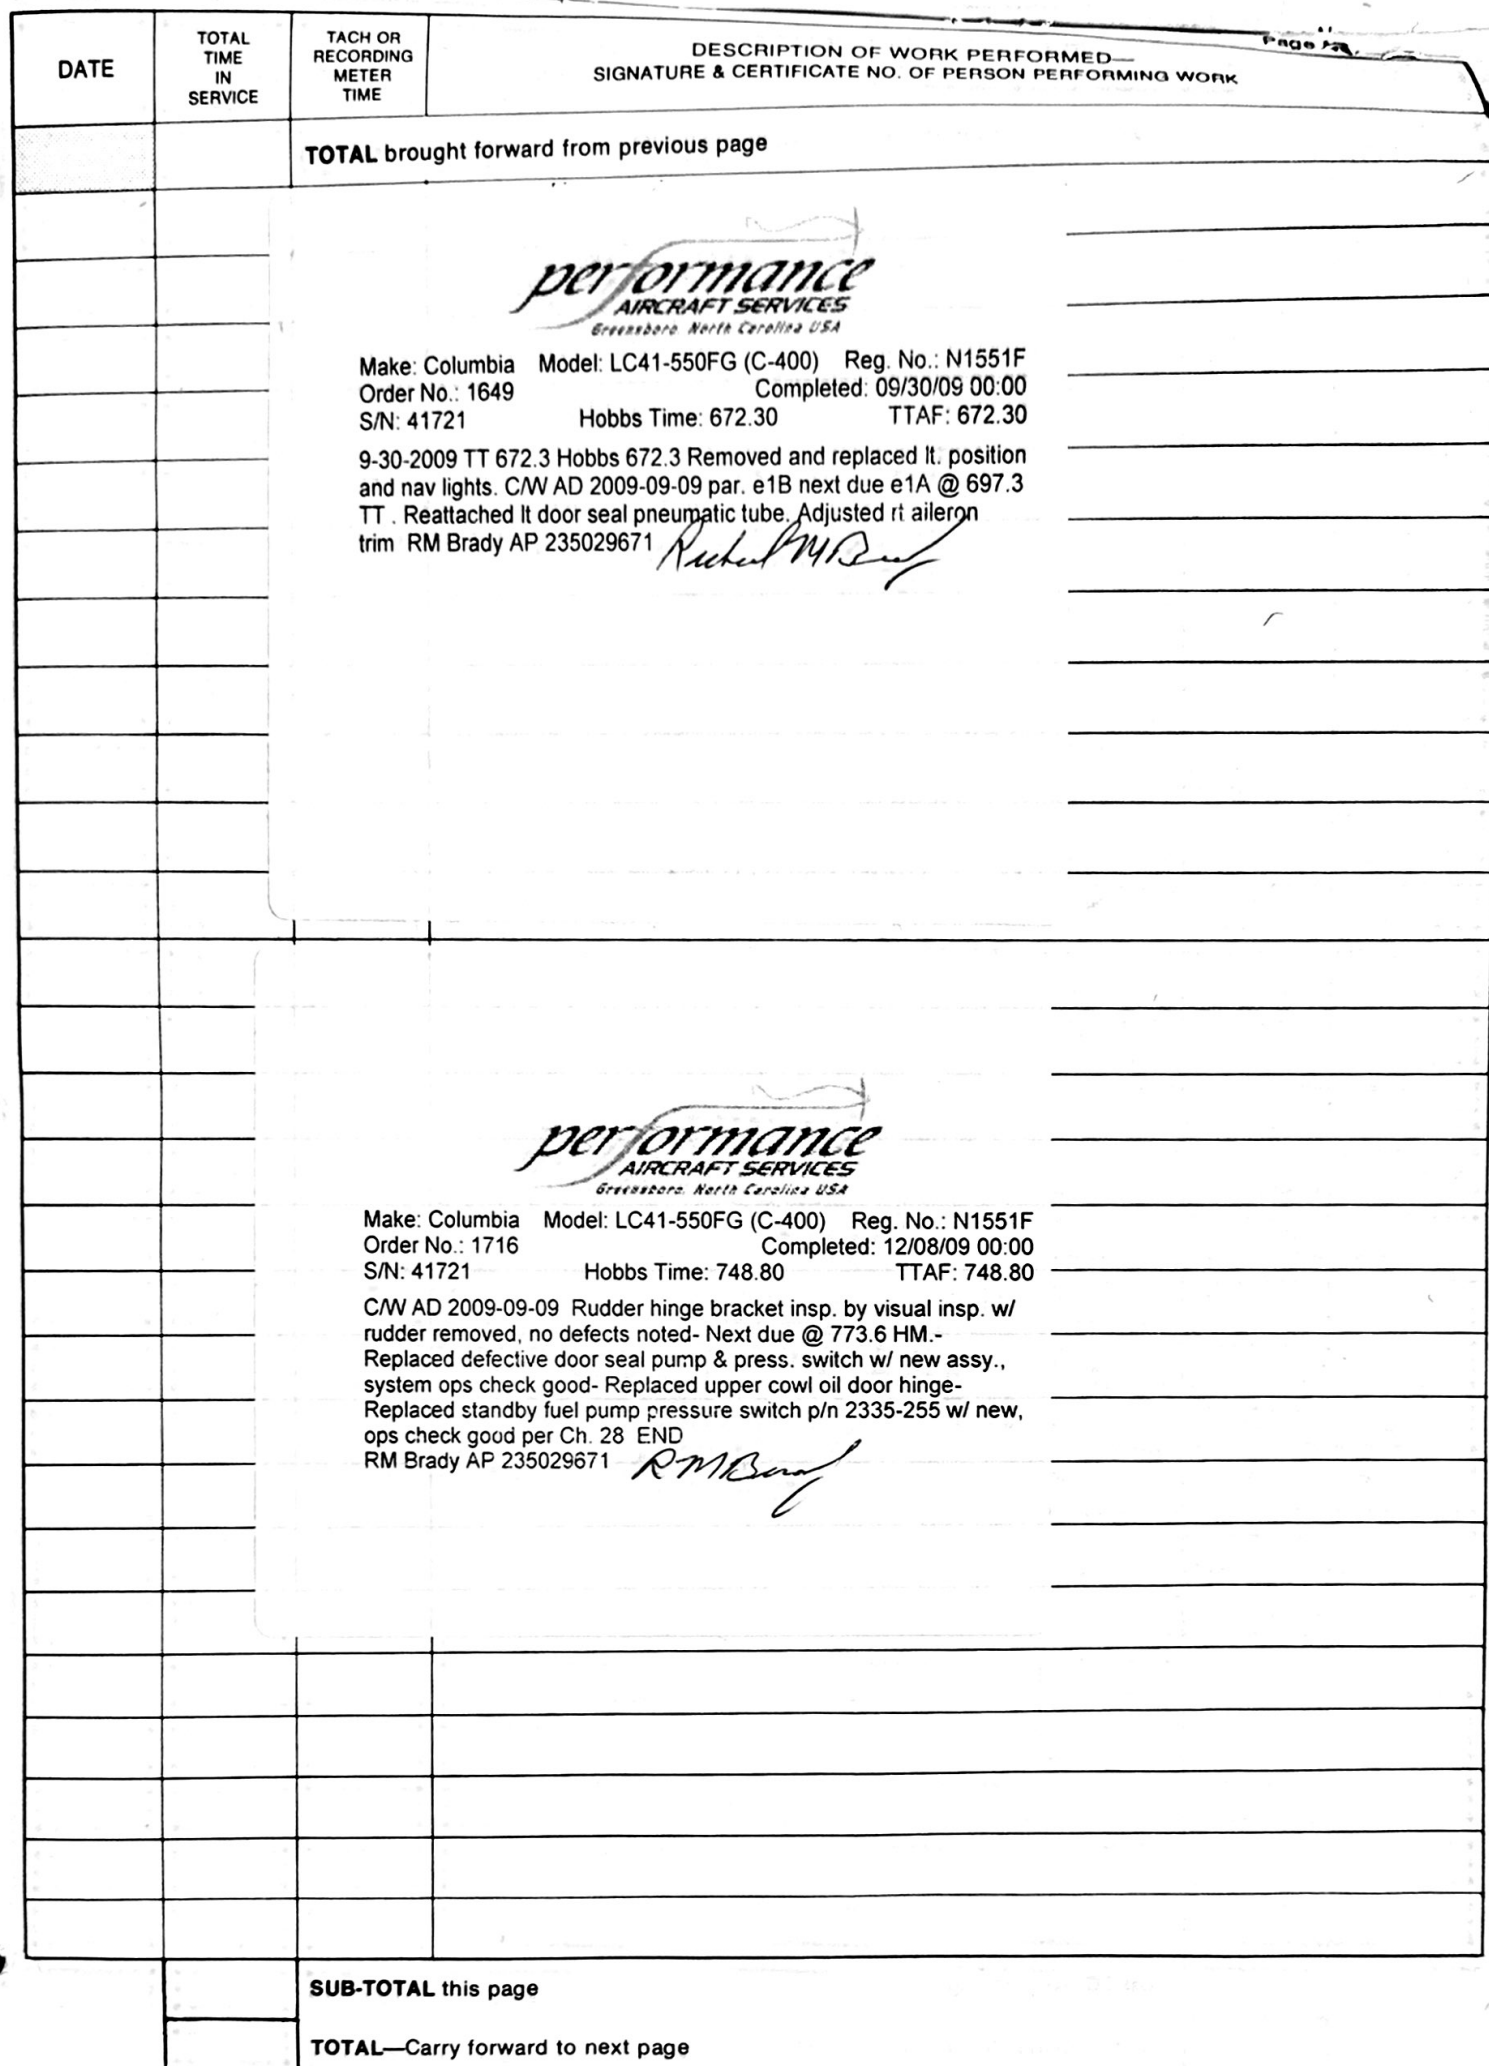 Page
DATE
TOTAL
TIME
IN
SERVICE
TACH OR
RECORDING
METER
TIME
DESCRIPTION OF WORK PERFORMED—
SIGNATURE & CERTIFICATE NO. OF PERSON PERFORMING WORK
TOTAL brought forward from previous page
performance
AIRCRAFT SERVICES
Greensboro, North Carolina USA
Make: Columbia Model: LC41-550FG (C-400) Reg. No.: N1551F
Order No.: 1649 Completed: 09/30/09 00:00
S/N: 41721 Hobbs Time: 672.30 TTAF: 672.30
9-30-2009 TT 672.3 Hobbs 672.3 Removed and replaced lt. position
and nav lights. C/W AD 2009-09-09 par. e1B next due e1A @ 697.3
TT . Reattached lt door seal pneumatic tube. Adjusted rt aileron
trim RM Brady AP 235029671 Richard M Brady
performance
AIRCRAFT SERVICES
Greensboro, North Carolina USA
Make: Columbia Model: LC41-550FG (C-400) Reg. No.: N1551F
Order No.: 1716 Completed: 12/08/09 00:00
S/N: 41721 Hobbs Time: 748.80 TTAF: 748.80
C/W AD 2009-09-09 Rudder hinge bracket insp. by visual insp. w/
rudder removed, no defects noted- Next due @ 773.6 HM.-
Replaced defective door seal pump & press. switch w/ new assy.,
system ops check good- Replaced upper cowl oil door hinge-
Replaced standby fuel pump pressure switch p/n 2335-255 w/ new,
ops check good per Ch. 28 END
RM Brady AP 235029671 RM Brady
SUB-TOTAL this page
TOTAL—Carry forward to next page